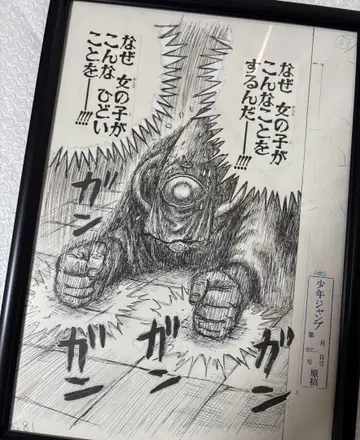 なぜ 女の子が
こんなことを
するんだ――!!!!
なぜ 女の子が
こんな ひどい
ことを――!!!!
ガン
ガン
ガン
少年ジャンプ
月 日号
第 号 原稿
81